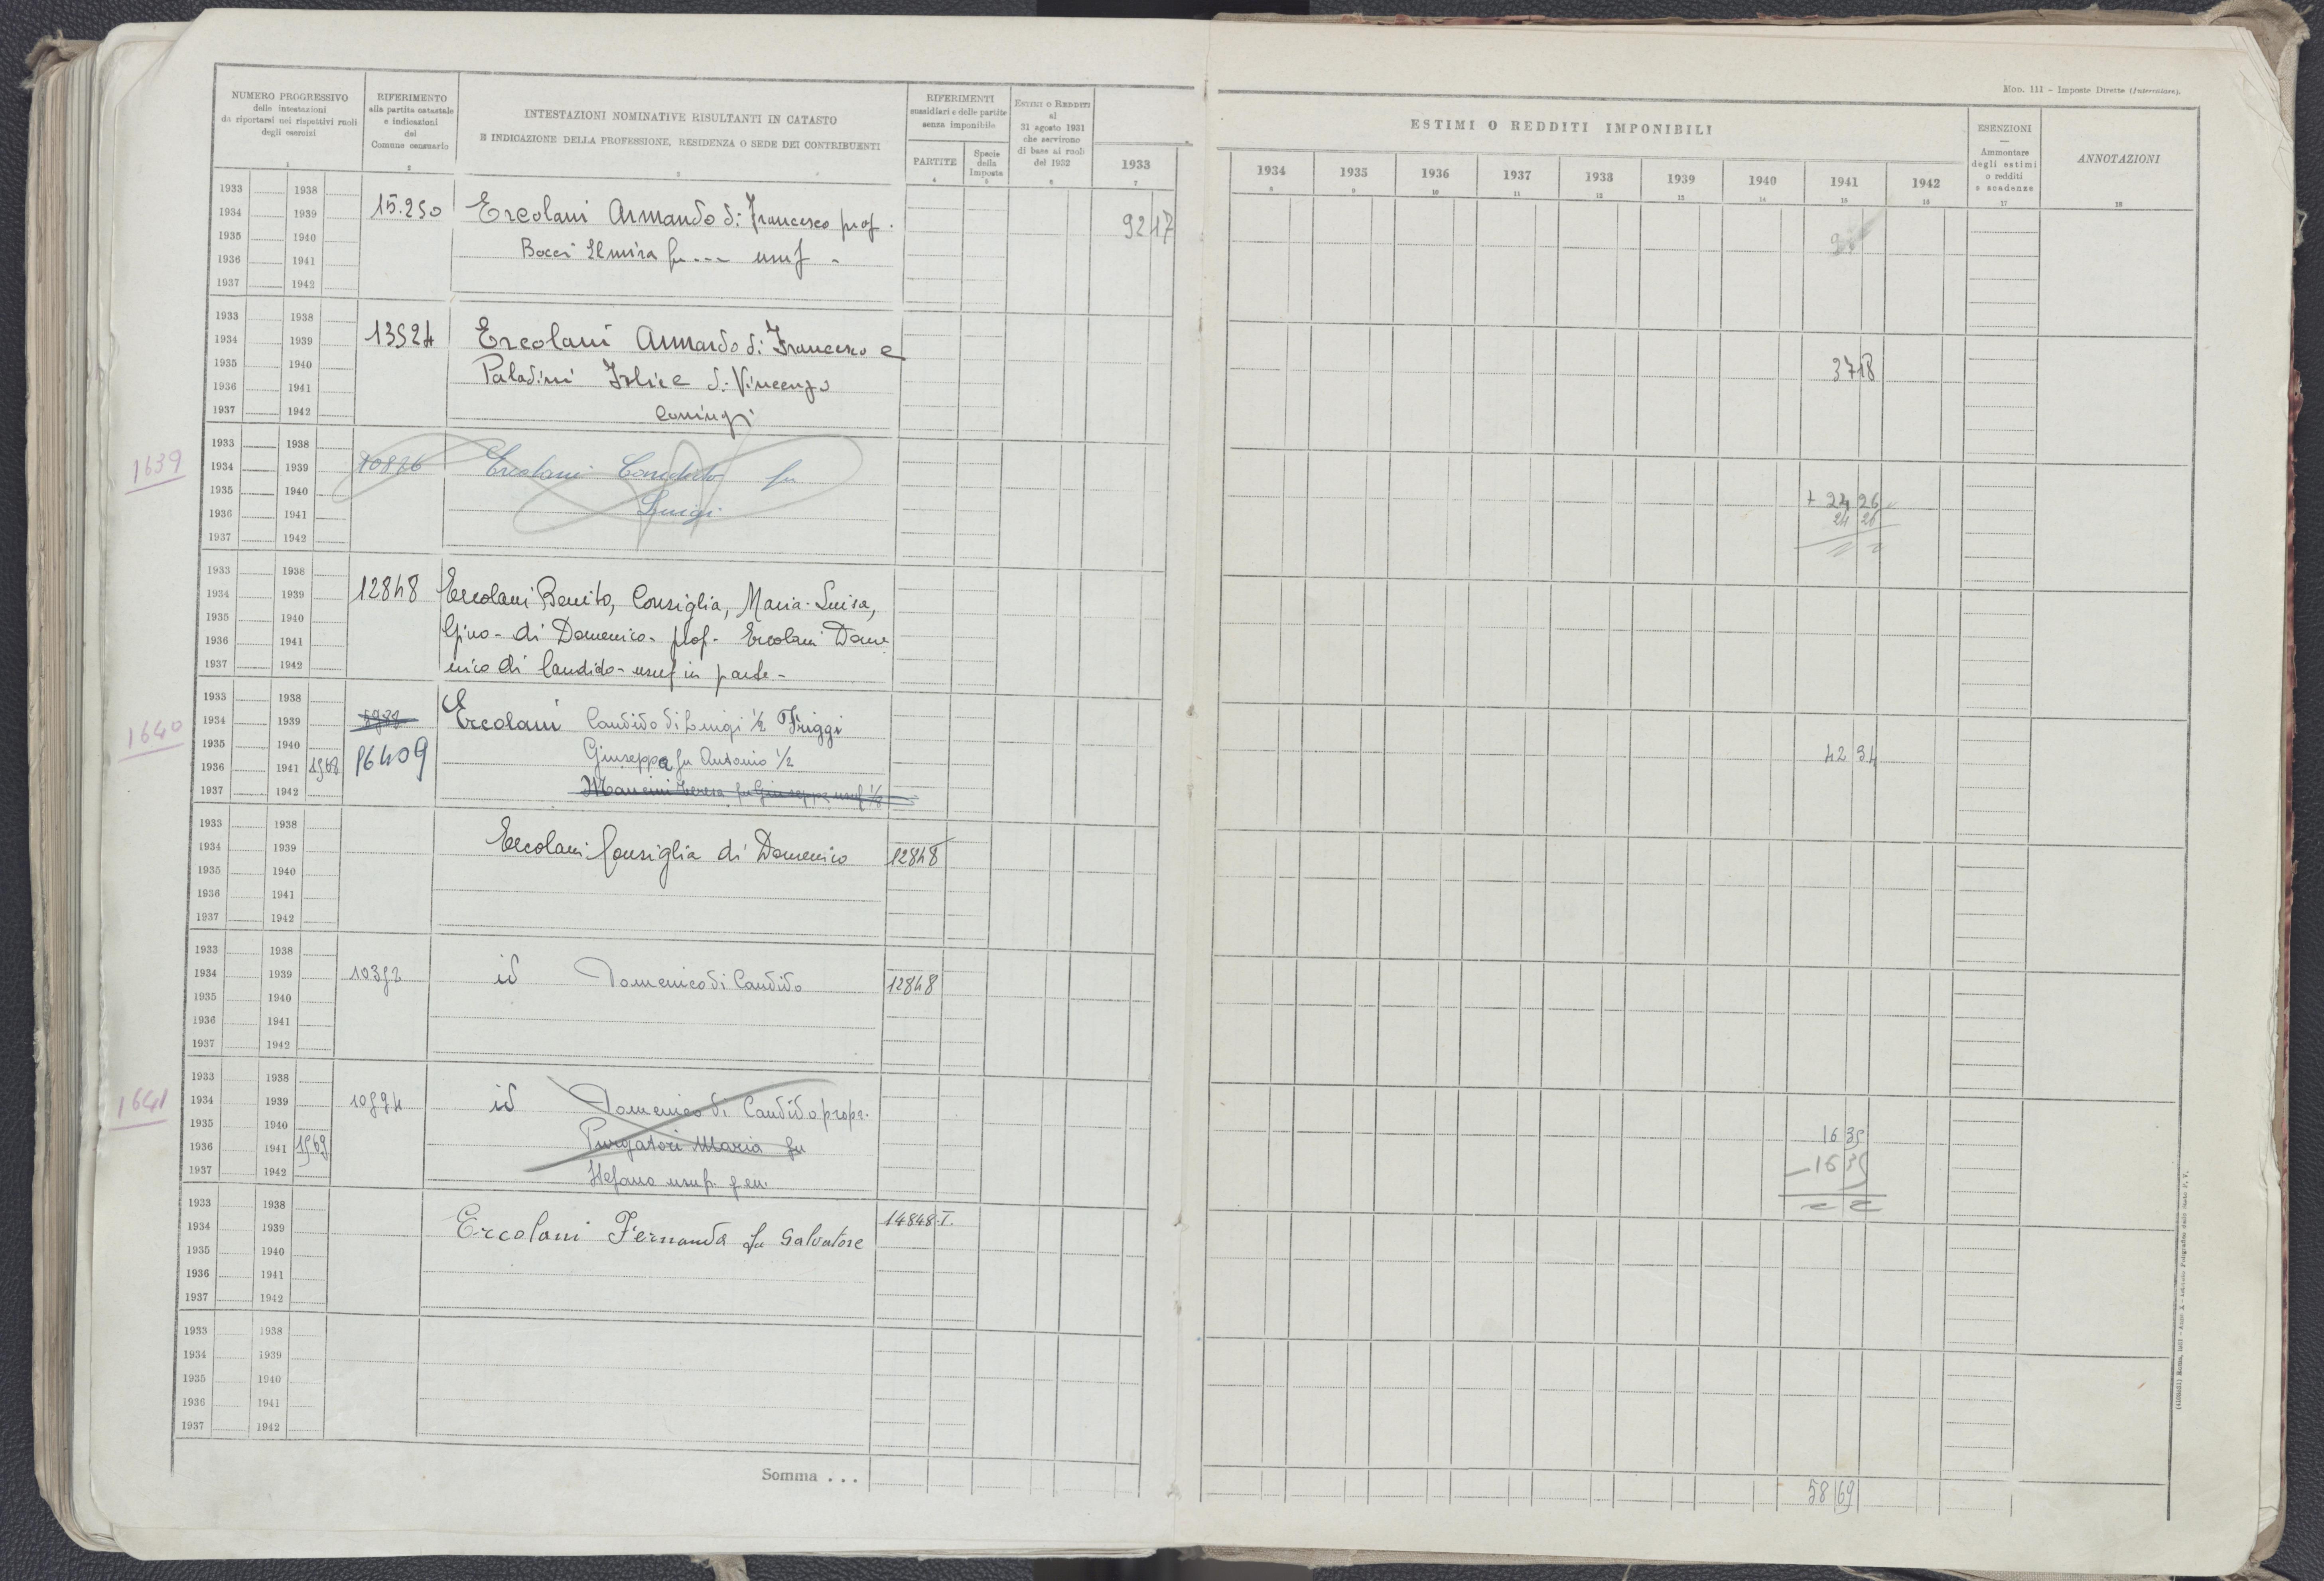 MOD. 111 - Imposte Dirette (Intercalare).
NUMERO PROGRESSIVO
delle intestazioni
da riportarsi nei rispettivi ruoli
degli esercizi
1
RIFERIMENTO
alla partita catastale
e indicazioni
del
Comune censuario
2
INTESTAZIONI NOMINATIVE RISULTANTI IN CATASTO
E INDICAZIONE DELLA PROFESSIONE, RESIDENZA O SEDE DEI CONTRIBUENTI
3
RIFERIMENTI
sussidiari e delle partite
senza imponibile
PARTITE
4
Specie
della
Imposta
5
ESTIMI O REDDITI
al
31 agosto 1931
che servirono
di base ai ruoli
del 1932
6
1933
7
ESTIMI O REDDITI IMPONIBILI
1934 1935 1936 1937 1938 1939 1940 1941 1942
8 9 10 11 12 13 14 15 16
ESENZIONI
Ammontare
degli estimi
o redditi
e scadenze
17
ANNOTAZIONI
18
1933 1938
1934 1939 15.250 Ercolani Armando di Francesco prof.
1935 1940 92 17
1936 1941 Bocci Elmira fu --- usuf -
1937 1942
1933 1938
1934 1939 13524 Ercolani Armando di Francesco e
1935 1940 37 18
1936 1941 Paladini di Vincenzo
1937 1942 coniugi
1639
1933 1938
1934 1939 10826 Ercolani fu
1935 1940 + 24 26
1936 1941 Luigi 24 26
1937 1942
1933 1938
1934 1939 12848 Ercolani Benito, Consiglia, Maria-Luisa,
1935 1940
1936 1941 Gino - di Domenico - prof - Ercolani Dome
1937 1942 nico di Candido - usuf in parte -
1640
1933 1938
1934 1939 Ercolani Candido di Luigi ½ Friggi
1935 1940 16409 42 34
1936 1941 1568 Giuseppa fu Antonio 1/2
1937 1942 Mancini Teresa fu Giuseppe usuf 1/2
1933 1938
1934 1939 Ercolani Consiglia di Domenico 12848
1935 1940
1936 1941
1937 1942
1933 1938
1934 1939 10392 id Domenico di Candido 12848
1935 1940
1936 1941
1937 1942
1641
1933 1938
1934 1939 10594 id Domenico di Candido propr.
1935 1940 16 35
1936 1941 1569 Purgatori Maria fu
-16 35
1937 1942 Stefano usuf. gen.
1933 1938
1934 1939 Ercolani Fernanda fu Salvatore 14848.I.
1935 1940
1936 1941
1937 1942
1933 1938
1934 1939
1935 1940
1936 1941
1937 1942
Somma . . . 58 69